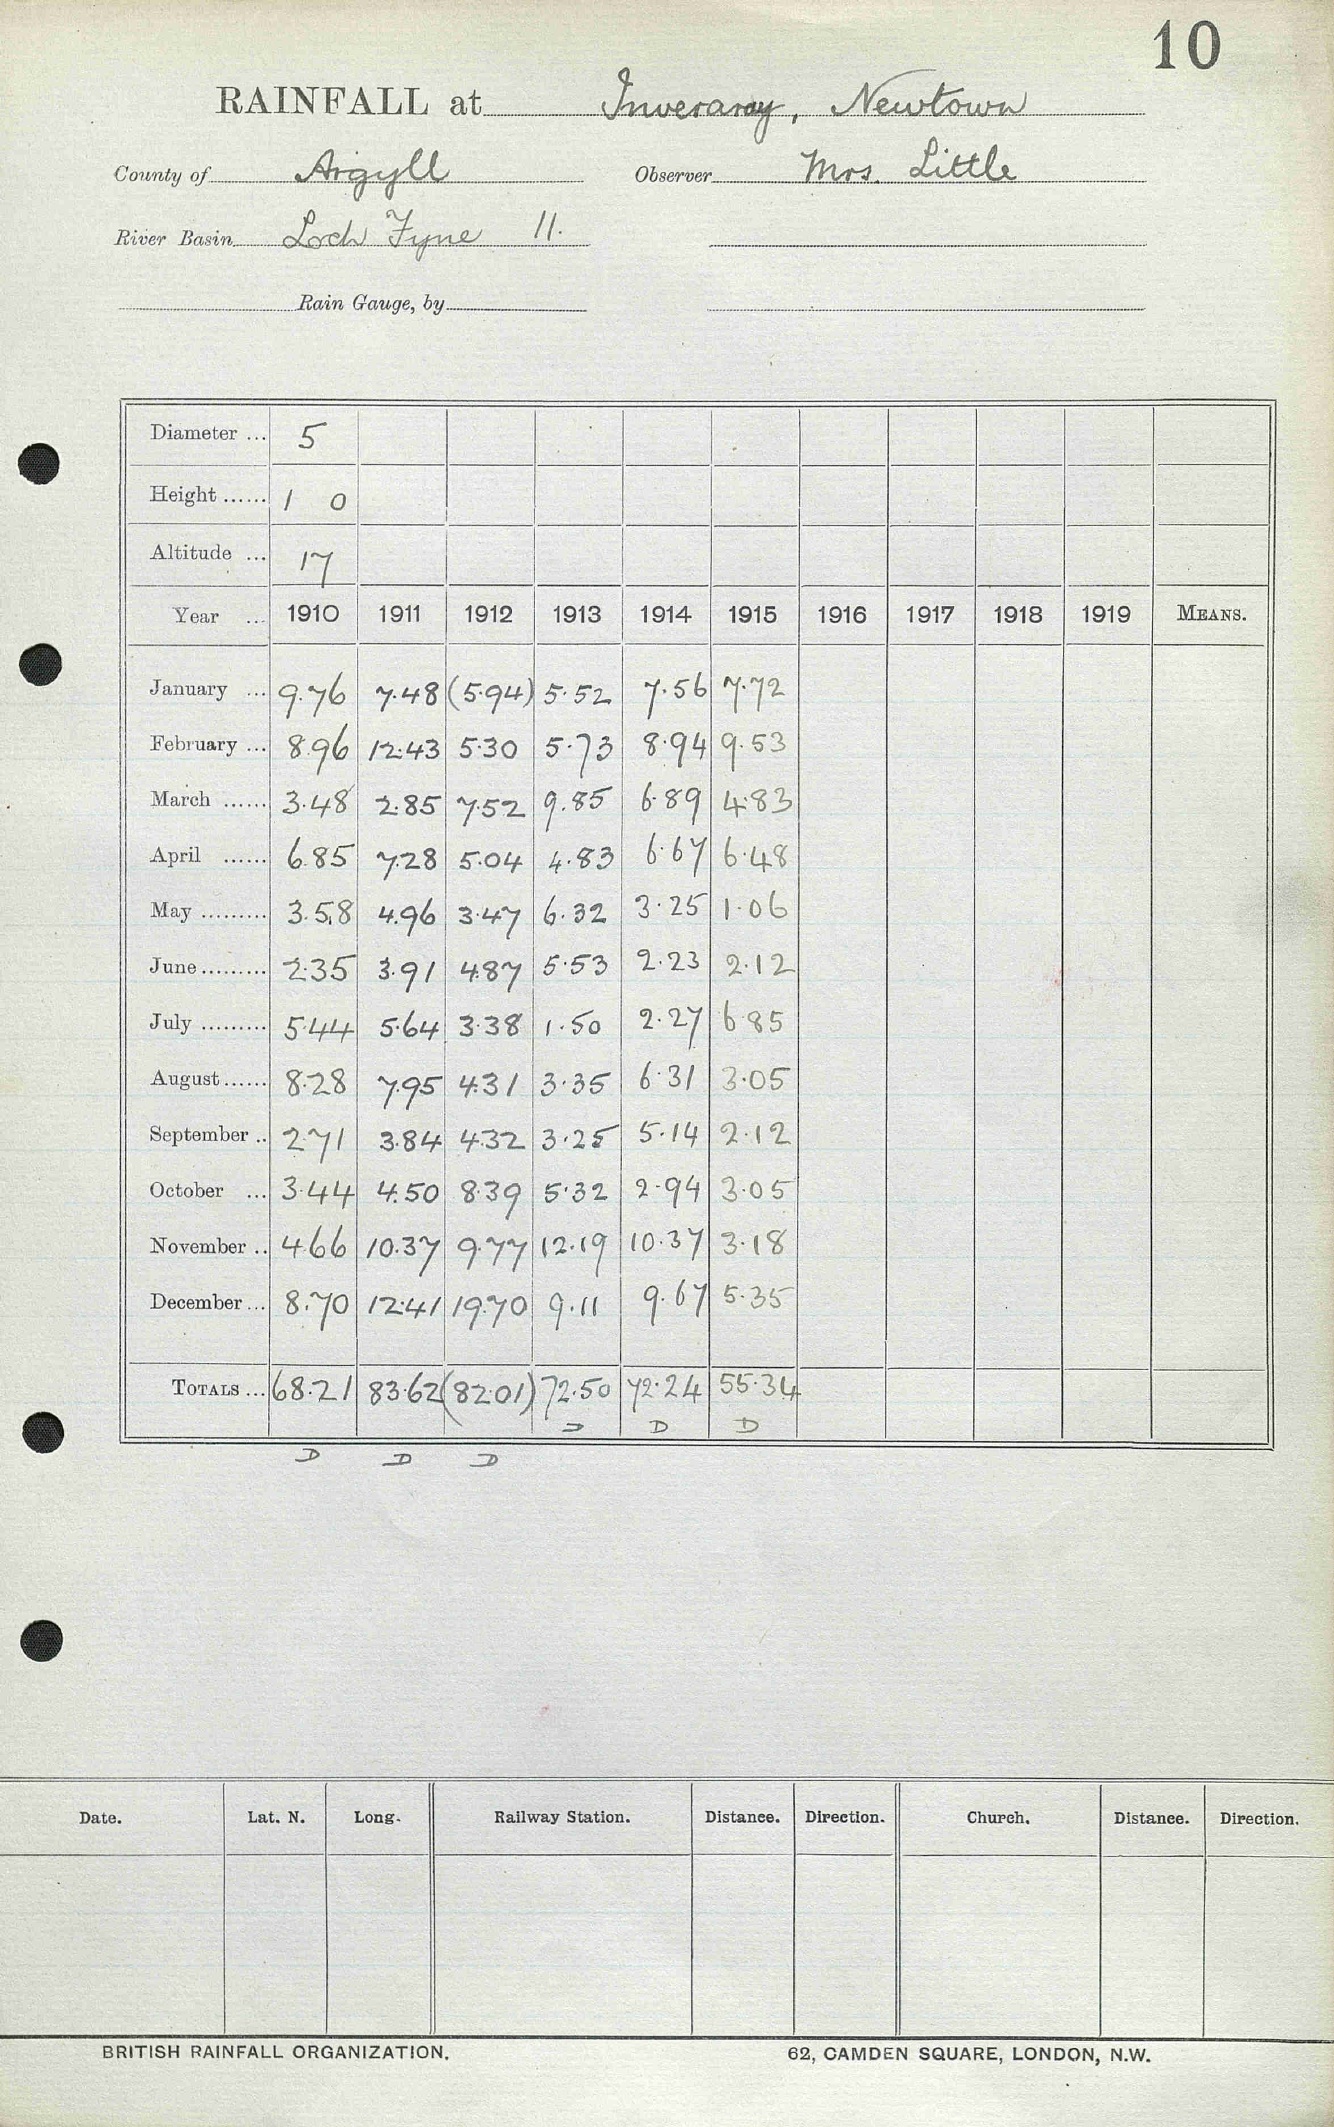 10
RAINFALL at Inveraray, Newtown
County of Argyll Observer Mrs. Little
River Basin Loch Fyne 11.
Rain Gauge, by
Diameter ... 5
Height ...... 1 0
Altitude ... 17
Year ... 1910 1911 1912 1913 1914 1915 1916 1917 1918 1919 MEANS.
January ... 9.76 7.48 (5.94) 5.52 7.56 7.72
February ... 8.96 12.43 5.30 5.73 8.94 9.53
March ...... 3.48 2.85 7.52 9.85 6.89 4.83
April ...... 6.85 7.28 5.04 4.83 6.67 6.48
May ......... 3.58 4.96 3.47 6.32 3.25 1.06
June ......... 2.35 3.91 4.87 5.53 2.23 2.12
July ......... 5.44 5.64 3.38 1.50 2.27 6.85
August ...... 8.28 7.95 4.31 3.35 6.31 3.05
September .. 2.71 3.84 4.32 3.25 5.14 2.12
October ... 3.44 4.50 8.39 5.32 2.94 3.05
November .. 4.66 10.37 9.77 12.19 10.37 3.18
December ... 8.70 12.41 19.70 9.11 9.67 5.35
TOTALS ... 68.21 83.62 (82.01) 72.50 72.24 55.34
D D D
D D D
Date. Lat. N. Long. Railway Station. Distance. Direction. Church. Distance. Direction.
BRITISH RAINFALL ORGANIZATION. 62, CAMDEN SQUARE, LONDON, N.W.